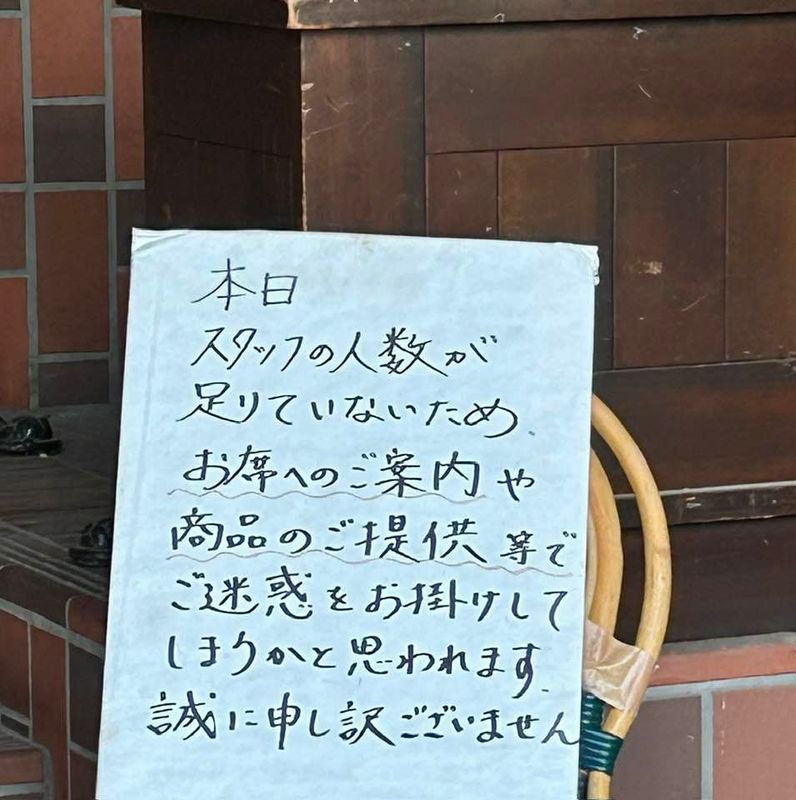 本日
スタッフの人数が
足りていないため、
お席へのご案内や
商品のご提供等で
ご迷惑をお掛けして
しまうかと思われます。
誠に申し訳ございません